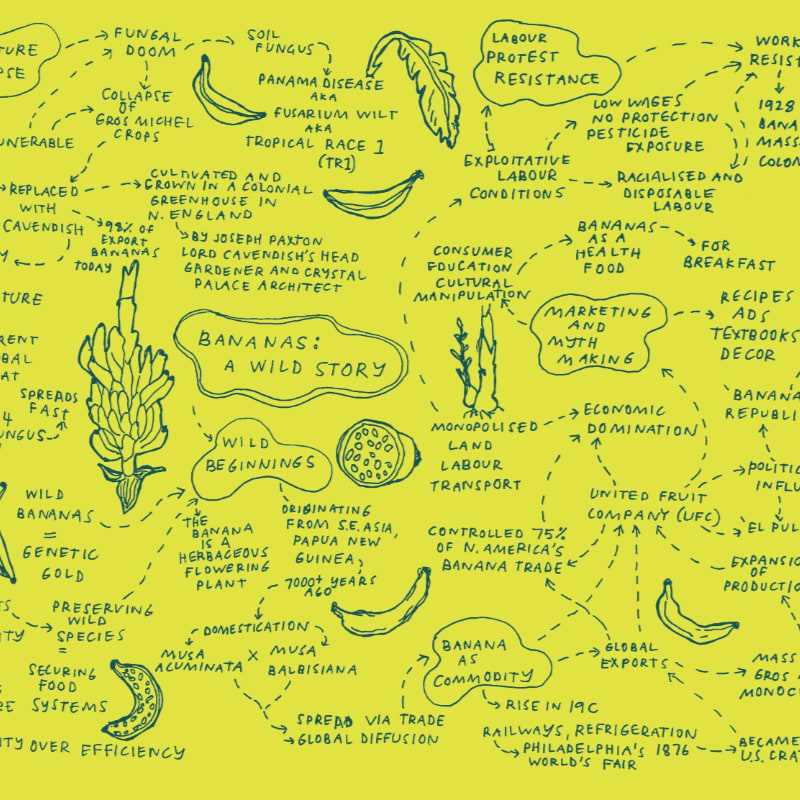 FUNGAL
DOOM
SOIL
FUNGUS
PANAMA DISEASE
AKA
FUSARIUM WILT
AKA
TROPICAL RACE 1
(TR1)
COLLAPSE
OF
GROS MICHEL
CROPS
REPLACED
WITH
CAVENDISH
98% OF
EXPORT
BANANAS
TODAY
CULTIVATED AND
GROWN IN A COLONIAL
GREENHOUSE IN
N. ENGLAND
BY JOSEPH PAXTON
LORD CAVENDISH'S HEAD
GARDENER AND CRYSTAL
PALACE ARCHITECT
SPREADS
FAST
4
BANANAS:
A WILD STORY
WILD
BEGINNINGS
THE
BANANA
IS A
HERBACEOUS
FLOWERING
PLANT
ORIGINATING
FROM S.E. ASIA,
PAPUA NEW
GUINEA,
7000+ YEARS
AGO
DOMESTICATION
MUSA
ACUMINATA
X
MUSA
BALBISIANA
SPREAD VIA TRADE
GLOBAL DIFFUSION
WILD
BANANAS
=
GENETIC
GOLD
PRESERVING
WILD
SPECIES
=
SECURING
FOOD
SYSTEMS
OVER EFFICIENCY
LABOUR
PROTEST
RESISTANCE
WORK
RESIST
1928
BANA
MASS
COLOM
LOW WAGES
NO PROTECTION
PESTICIDE
EXPOSURE
EXPLOITATIVE
LABOUR
CONDITIONS
RACIALISED AND
DISPOSABLE
LABOUR
BANANAS
AS A
HEALTH
FOOD
FOR
BREAKFAST
CONSUMER
EDUCATION
CULTURAL
MANIPULATION
MARKETING
AND
MYTH
MAKING
RECIPES
ADS
TEXTBOOKS
DECOR
MONOPOLISED
LAND
LABOUR
TRANSPORT
ECONOMIC
DOMINATION
BANANA
REPUBLI
POLITIC
INFLU
EL PUL
UNITED FRUIT
COMPANY (UFC)
CONTROLLED 75%
OF N. AMERICA'S
BANANA TRADE
EXPANSIO
OF
PRODUCTIO
BANANA
AS
COMMODITY
GLOBAL
EXPORTS
MASS
GROS
MONOC
RISE IN 19C
RAILWAYS, REFRIGERATION
PHILADELPHIA'S 1876
WORLD'S FAIR
BECAME
U.S. CRA